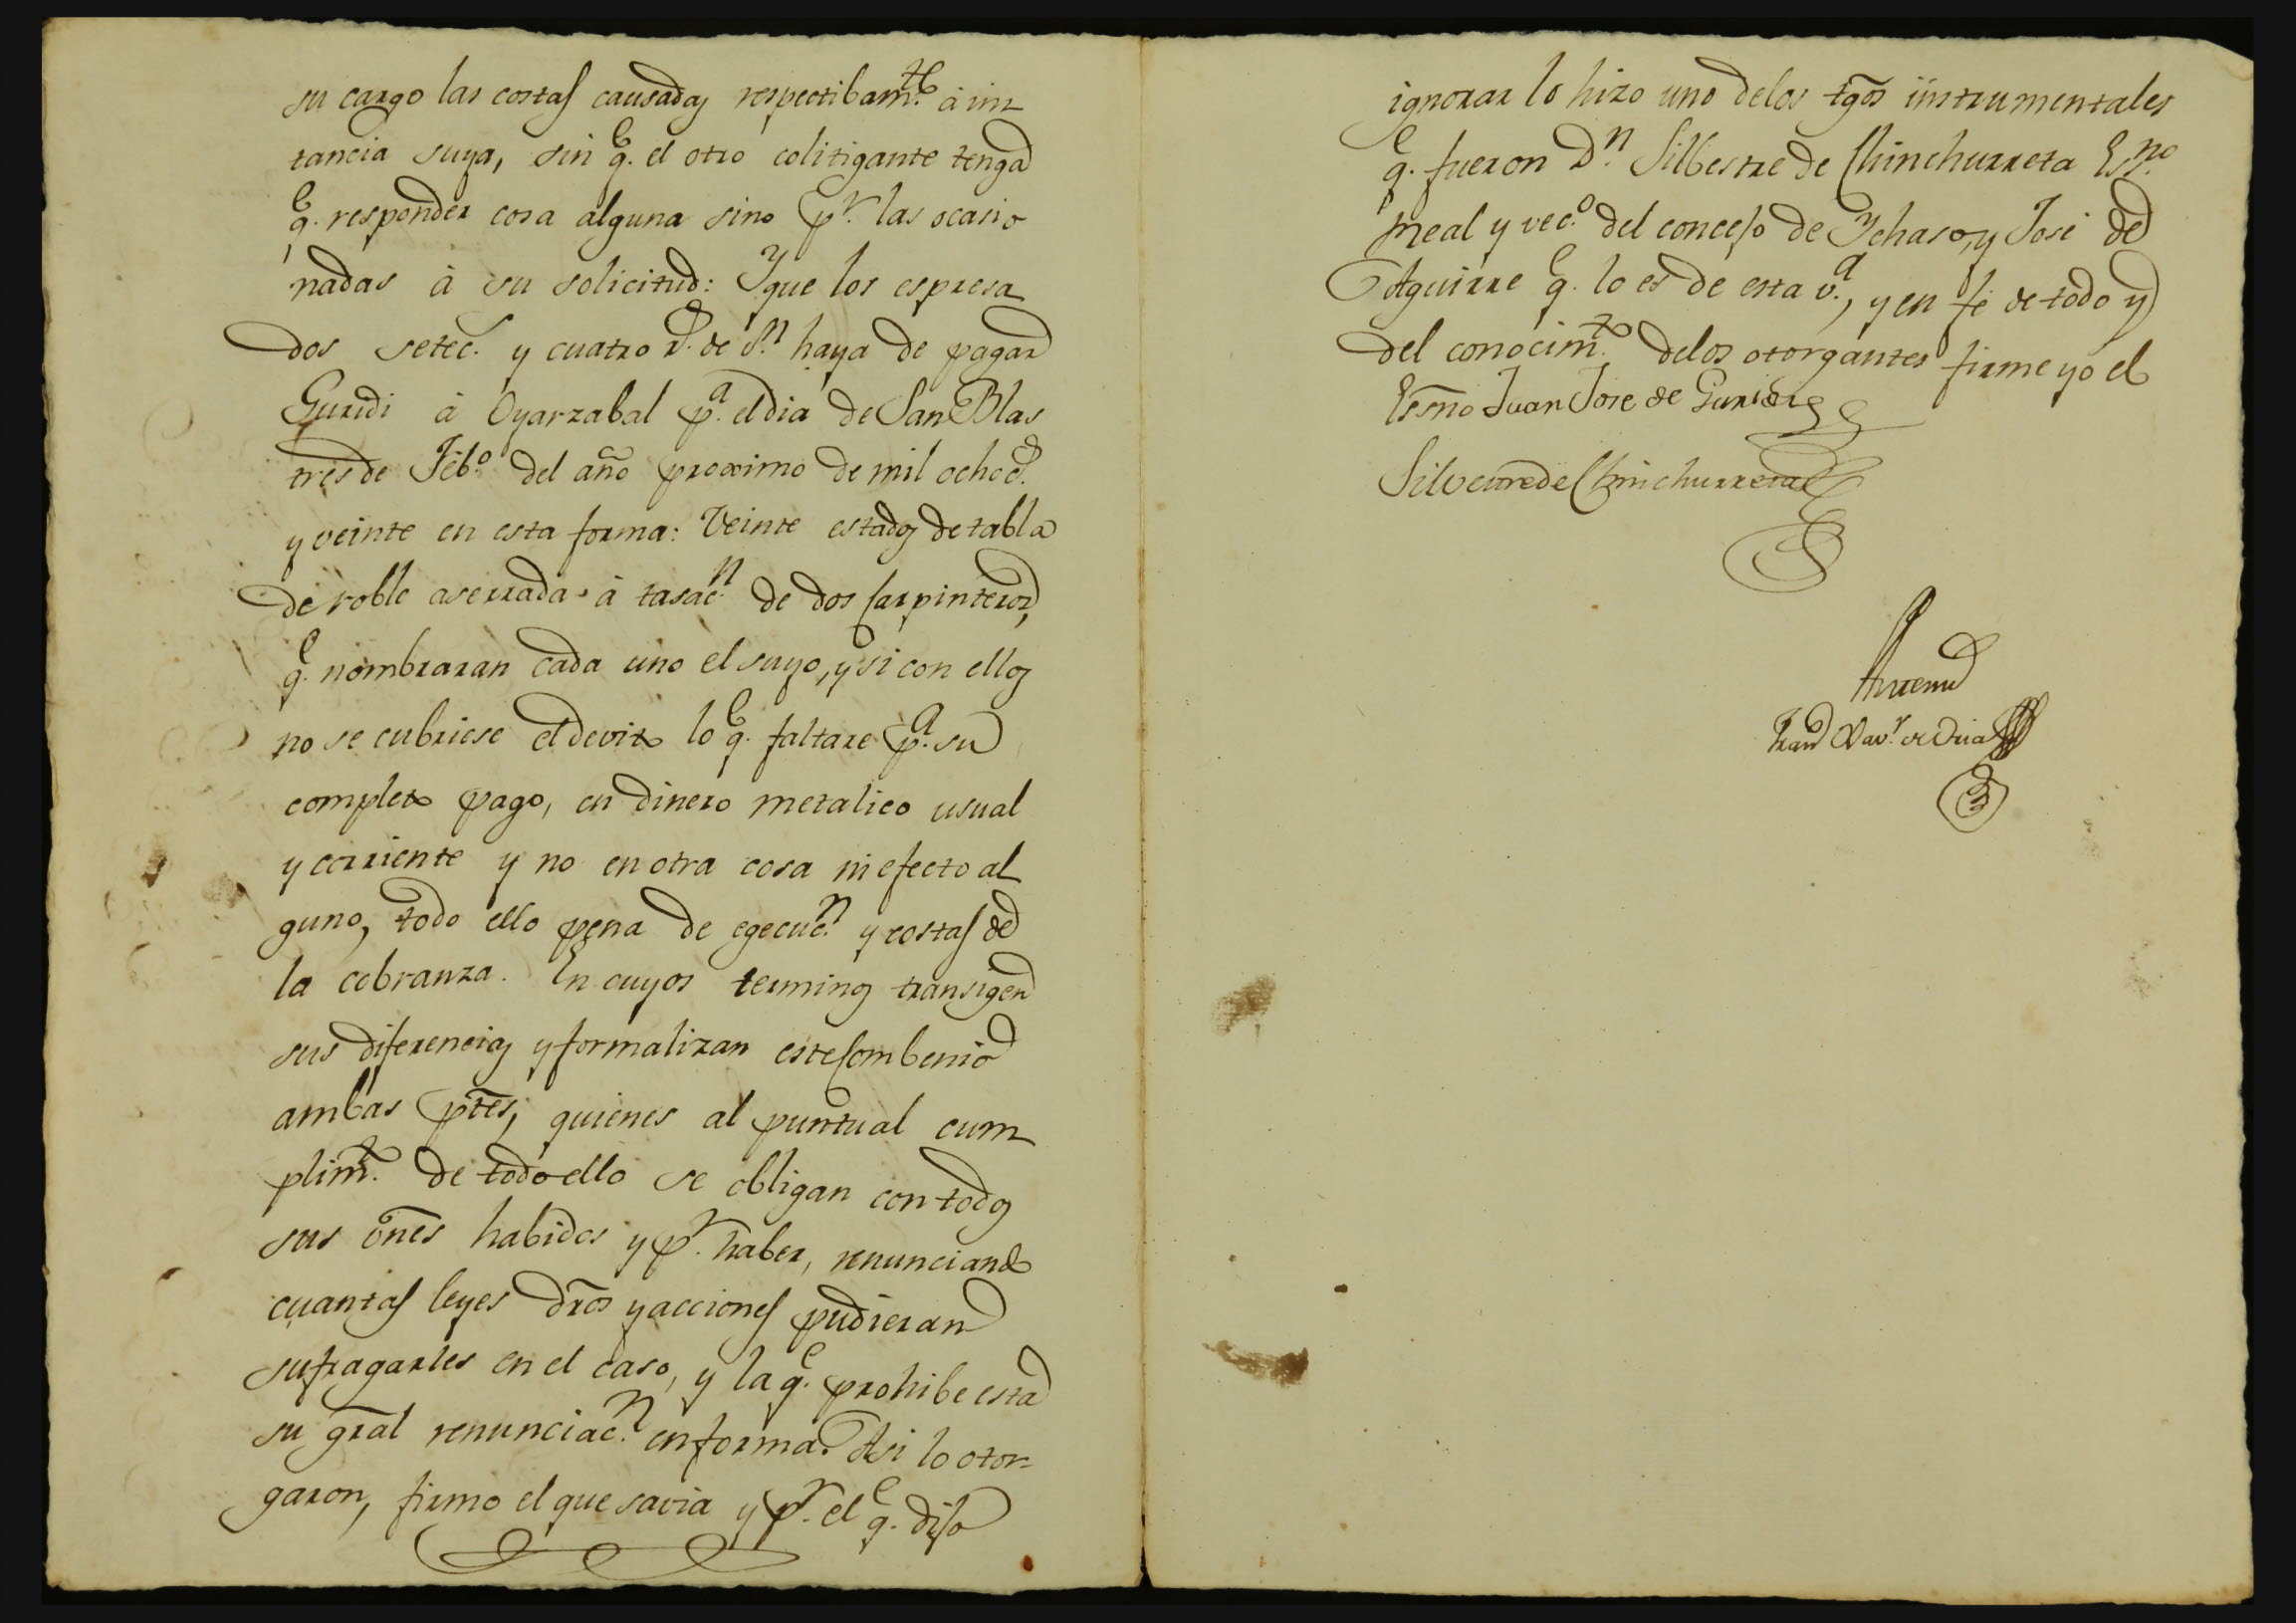 su cargo las costas causadas respectibam.te à ins
tancia suya, sin q.e el otro colitigante tenga
q.e responder cosa alguna sino p.r las ocasio
nadas à su solicitud: Y que los espresa
dos setec.s y cuatro r.s de v.n haya de pagar
Guridi à Oyarzabal p.a el dia de San Blas
tres de Feb.o del año proximo de mil ochoc.s
y veinte en esta forma: Veinte estados de tabla
de roble aserrada à tasac.n de dos Carpinteros,
q.e nombraran cada uno el suyo, y si con ellos
no se cubriese el devito lo q.e faltare p.a su
completo pago, en dinero metalico usual
y corriente y no en otra cosa ni efecto al
guno, todo ello pena de egecuc.n y costas de
la cobranza. En cuyos terminos transigen
sus diferencias y formalizan este Combenio
ambas ptes, quienes al puntual cum
plim.to de todo ello se obligan con todos
sus vnes habidos y p.r haber, renunciando
cuantas leyes dros y acciones pudieran
sufragarles en el caso, y la q.e prohibe esta
su gral renunciac.n en forma. Asi lo otor-
garon, firmo el que savia y p.r el q.e dijo
ignorar lo hizo uno delos tgos instrumentales
q.e fueron D.n Silbestre de Chinchurreta Es.no
Real y vec.o del concejo de Ychaso, y José de
Aguirre q.e lo es de esta v.a, y en fe de todo y
del conocim.to delos otorgantes firme yo el
Esno Juan Jose de Guridi
Silvestre de Chinchurreta
Antemi
Fran.co Xav.r de